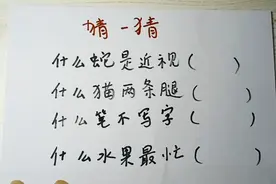 猜一猜
什么蛇是近视( )
什么猫两条腿( )
什么笔不写字( )
什么水果最忙( )